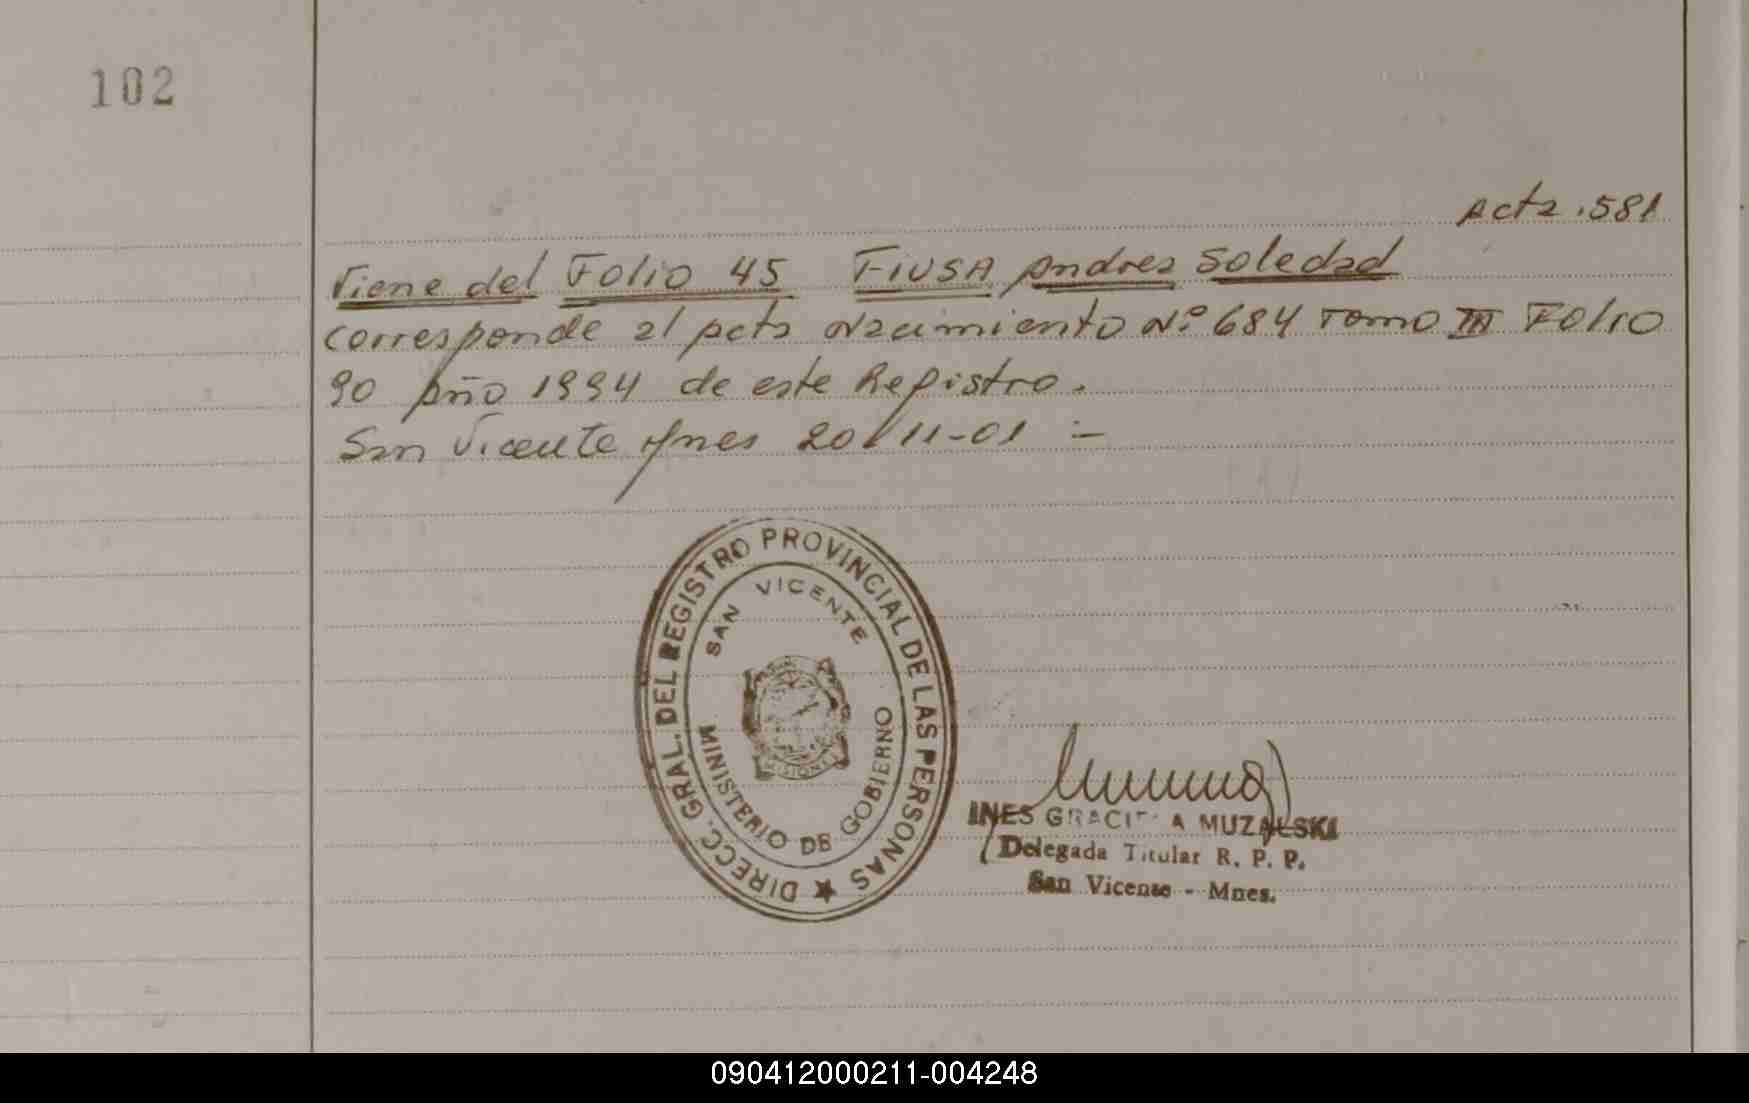 102
Acta .581
Viene del Folio 45 FIUSA Andrea Soledad
corresponde al Acta Nacimiento Nº 684 Tomo III Folio
90 Año 1994 de este Registro.
San Vicente Mnes 20-11-01 =
DIRECC. GRAL. DEL REGISTRO PROVINCIAL DE LAS PERSONAS ★
SAN VICENTE
MISIONES
MINISTERIO DE GOBIERNO
INES GRACIELA MUZALSKI
Delegada Titular R. P. P.
San Vicente - Mnes.
090412000211-004248